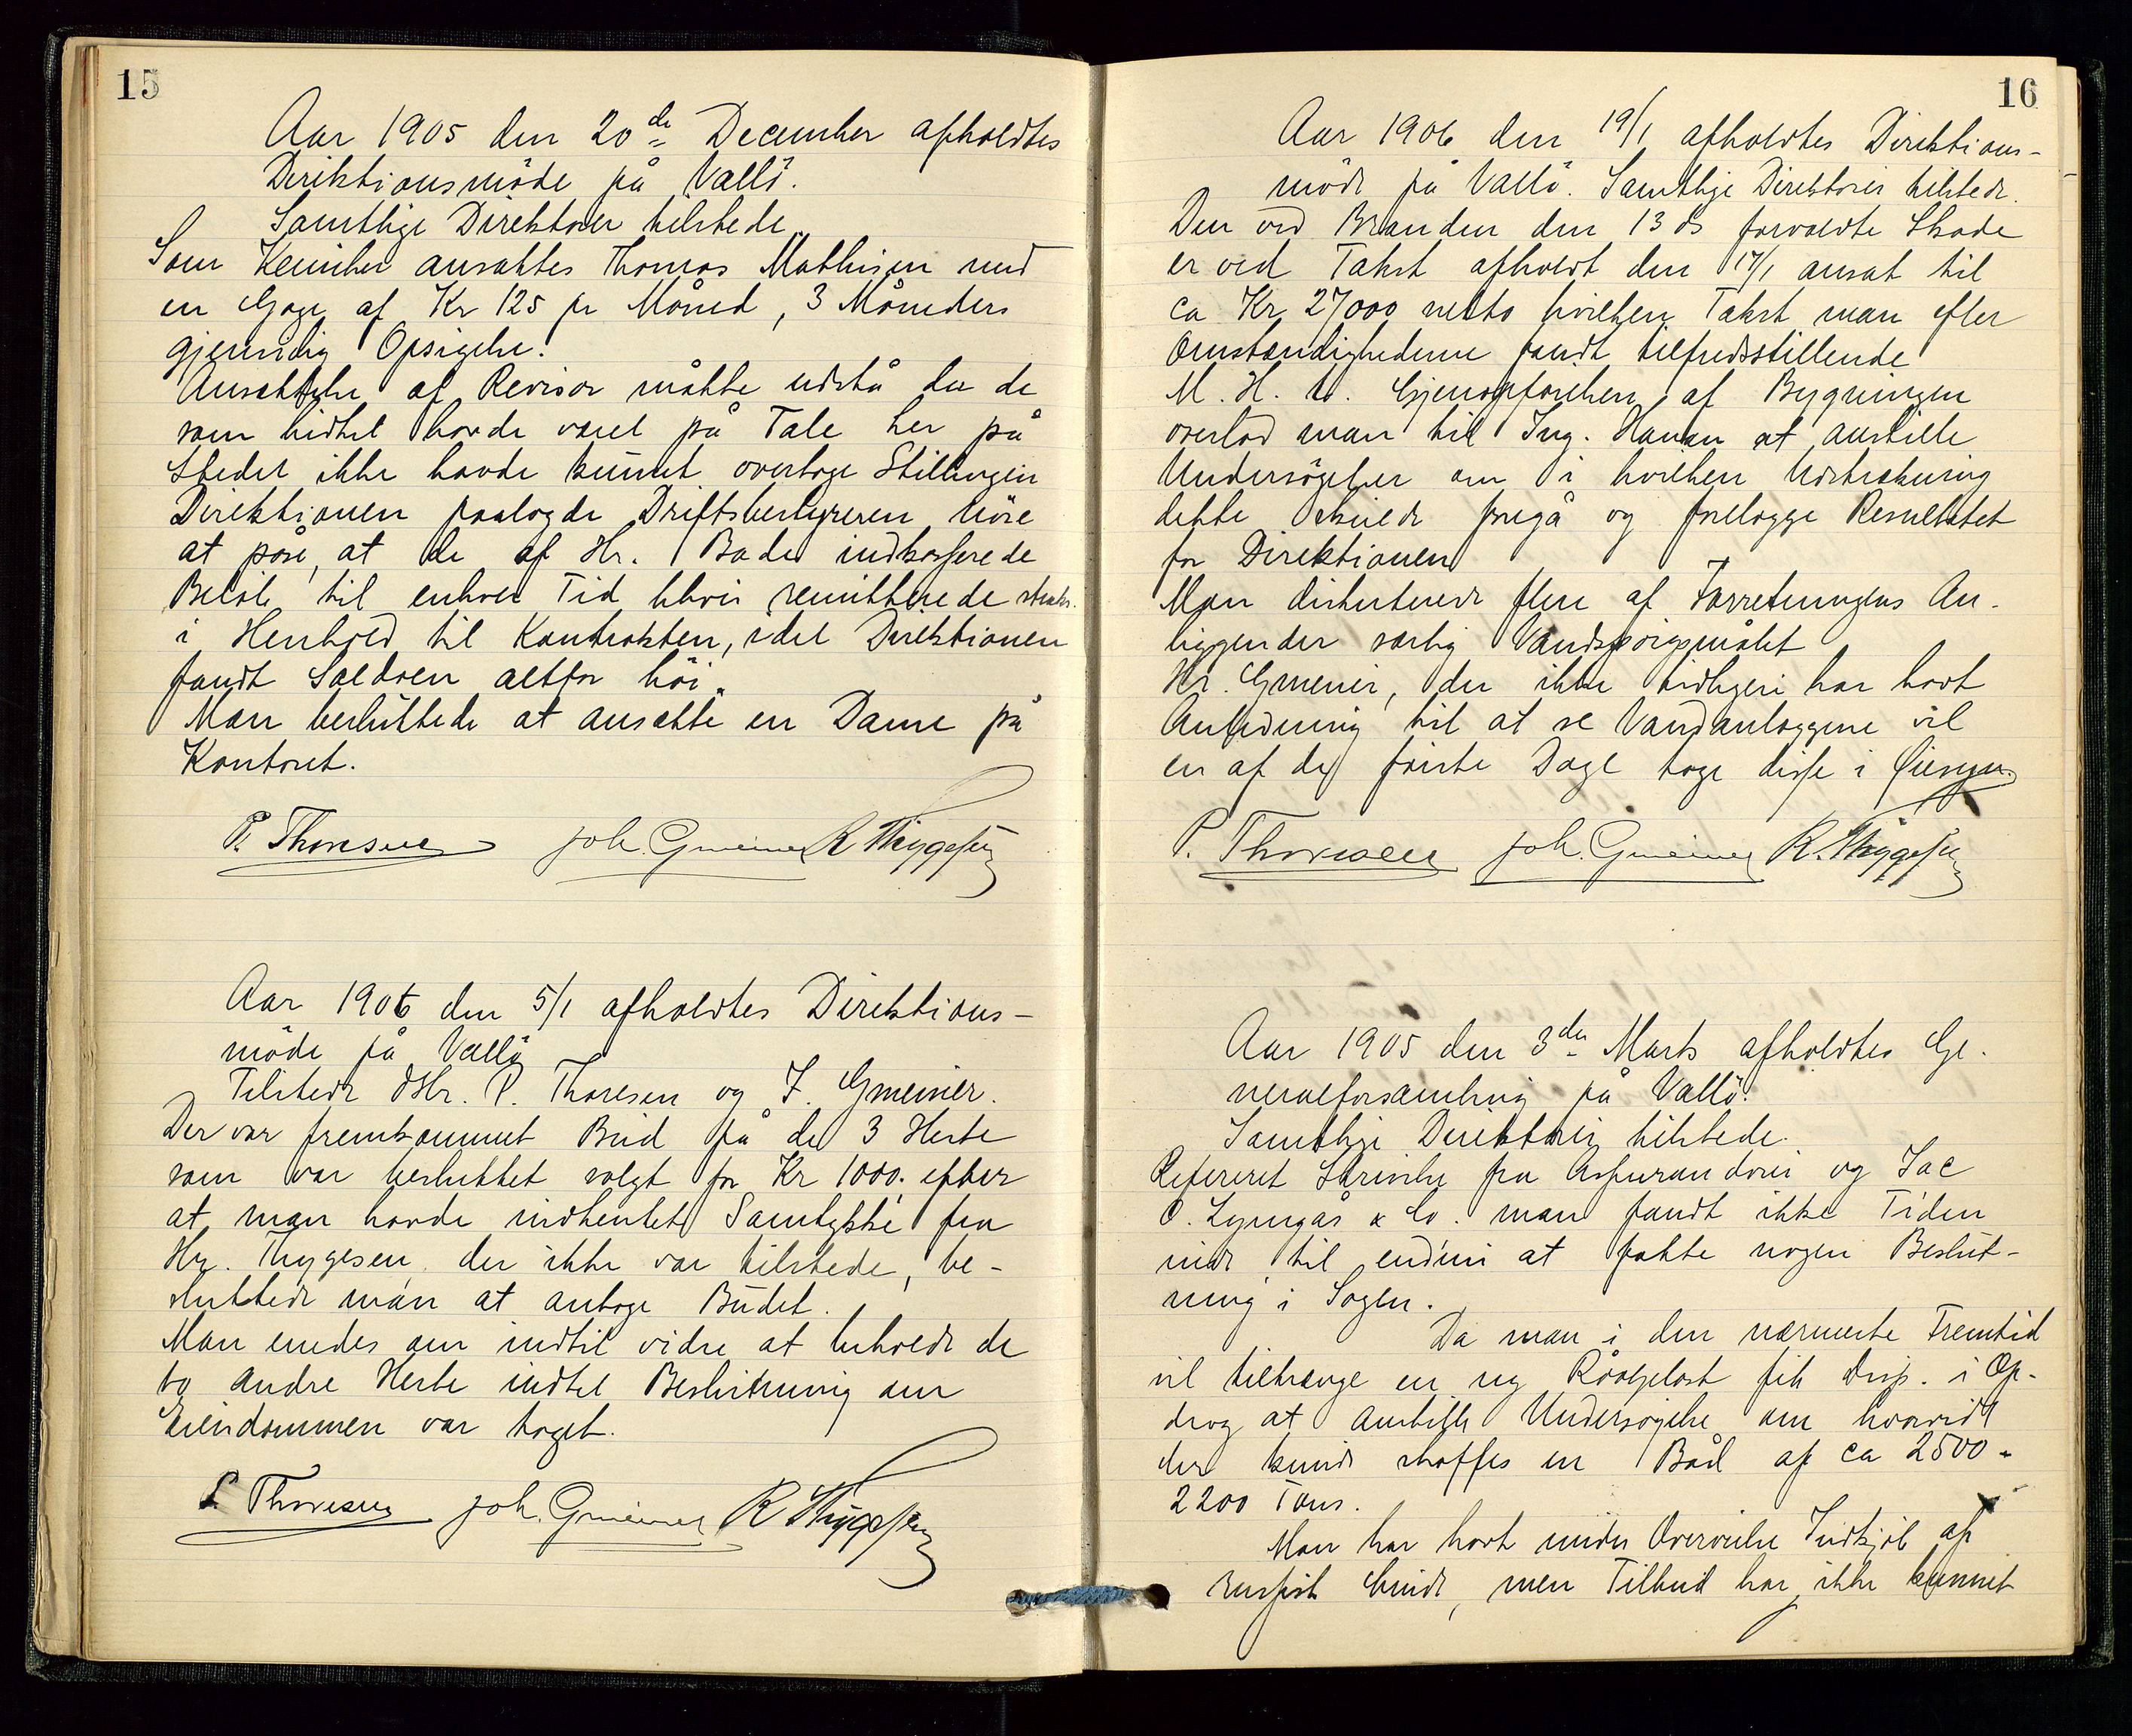 15
Aar 1905 den 20de December afholdtes
Direktionsmöde på Vallö.
Samtlige Direktorer tilstede.
Som Kemiker ansattes Thomas Mathisen med
en Gage af Kr 125 pr Måned, 3 Måneders
gjensidig Opsigelse.
Ansættelse af Revisor måtte udstå da de
som hidtil havde været på Tale her på
Stedet ikke havde kunnet overtage Stillingen
Direktionen paalagde Driftsbestyreren nöie
at påse, at de af Hr. Bade indkasserede
Belöb til enhver Tid blev remitterede straks
i Henhold til Kontrakten, idet Direktionen
fandt Saldoen altfor höi.
Man besluttede at ansætte en Dame på
Kontoret.
P. Thoresen Joh. Gmeiner R Thygesen
Aar 1906 den 5/1 afholdtes Direktions-
möde på Vallö
Tilstede dHr. P. Thoresen og J. Gmeiner.
Der var fremkommet Bud på de 3 Heste
som var besluttet solgt for Kr 1000. efter
at man havde indhentet Samtykke fra
Hr. Thygesen, der ikke var tilstede, be-
sluttede man at antage Budet.
Man enedes om indtil vidre at beholde de
to andre Heste indtil Beslutning om
Eiendommen var taget.
P. Thoresen Joh. Gmeiner R Thygesen
16
Aar 1906 den 19/1 afholdtes Direktions-
möde på Vallö. Samtlige Direktorer tilstede.
Den ved Branden den 13 ds forvoldte Skade
er ved Takst afholdt den 17/1 ansat til
ca Kr 27000 netto hvilken Takst man efter
Omstændighederne fandt tilfredsstillende
M. H. t. Gjenopförelsen af Bygningen
overlod man til Ing. Hansen at anstille
Undersögelser om i hvilken Udstrækning
dette skulde foregå og forelægge Resultatet
for Direktionen
Man diskuterede flere af Forretningens An-
liggender særlig Vandspörgsmålet
Hr. Gmeiner, der ikke tidligere har havt
Anledning til at se Vandanlæggene vil
en af de förste Dage tage disse i Øiesyn.
P. Thoresen Joh. Gmeiner R. Thygesen
Aar 1905 den 3die Marts afholdtes Ge-
neralforsamling på Vallö.
Samtlige Direktörer tilstede.
Refereret Skrivelse fra Assurandörer og Jac
O. Lyngås & Co. man fandt ikke Tiden
inde til endnu at fatte nogen Beslut-
ning i Sagen.
Da man i den nærmeste Fremtid
vil tiltrænge en ny Råoljelast fik Disp. i Op-
drag at anstille Undersögelse om hvorvidt
der kunde skaffes en Båd af ca 2500-
2200 Tons.
Man har havt under Overveielse Indkjöb af
russisk Crude, men Tilbud har ikke kunnet